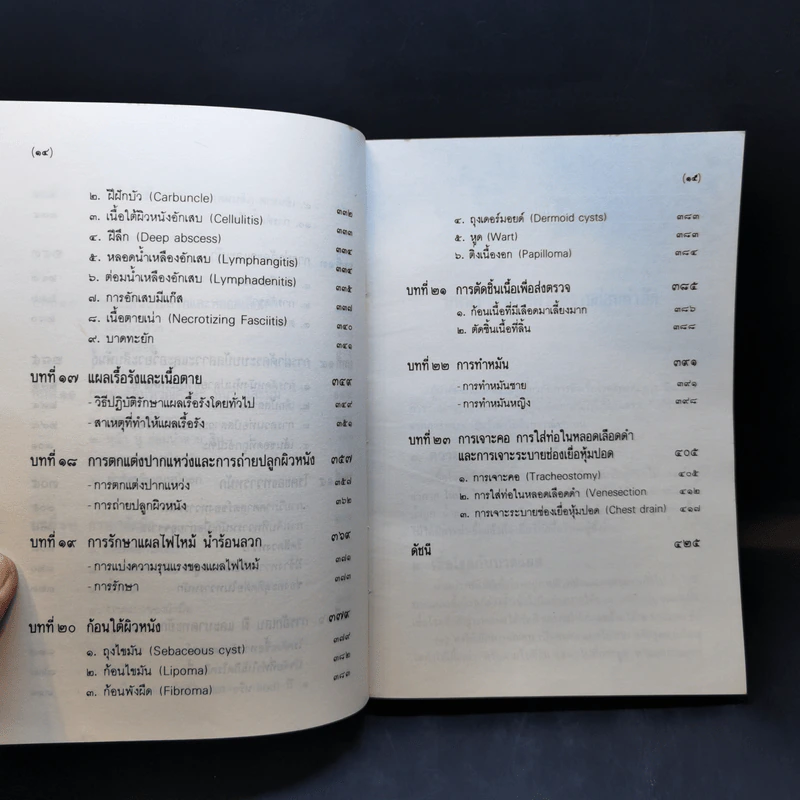 (๑๔)
๒. ฝีฝักบัว (Carbuncle) ๓๓๒
๓. เนื้อใต้ผิวหนังอักเสบ (Cellulitis) ๓๓๓
๔. ฝีลึก (Deep abscess) ๓๓๔
๕. หลอดน้ำเหลืองอักเสบ (Lymphangitis) ๓๓๔
๖. ต่อมน้ำเหลืองอักเสบ (Lymphadenitis) ๓๓๕
๗. การอักเสบมีแก๊ส ๓๓๗
๘. เนื้อตายเน่า (Necrotizing Fasciitis) ๓๔๐
๙. บาดทะยัก ๓๔๑
บทที่ ๑๗ แผลเรื้อรังและเนื้อตาย ๓๔๙
- วิธีปฏิบัติรักษาแผลเรื้อรังโดยทั่วไป ๓๔๙
- สาเหตุที่ทำให้แผลเรื้อรัง ๓๕๑
บทที่ ๑๘ การตกแต่งปากแหว่งและการถ่ายปลูกผิวหนัง ๓๕๗
- การตกแต่งปากแหว่ง ๓๕๘
- การถ่ายปลูกผิวหนัง ๓๖๒
บทที่ ๑๙ การรักษาแผลไฟไหม้ น้ำร้อนลวก ๓๖๙
- การแบ่งความรุนแรงของแผลไฟไหม้ ๓๗๑
- การรักษา ๓๗๓
บทที่ ๒๐ ก้อนใต้ผิวหนัง ๓๗๙
๑. ถุงไขมัน (Sebaceous cyst)
๒. ก้อนไขมัน (Lipoma) ๓๘๒
๓. ก้อนพังผืด (Fibroma) ๓๘๓
(๑๕)
๔. ถุงเดอร์มอยด์ (Dermoid cysts) ๓๘๓
๕. หูด (Wart) ๓๘๓
๖. ติ่งเนื้องอก (Papilloma) ๓๘๔
บทที่ ๒๑ การตัดชิ้นเนื้อเพื่อส่งตรวจ ๓๘๕
๑. ก้อนเนื้อที่มีเลือดมาเลี้ยงมาก ๓๘๖
๒. ตัดชิ้นเนื้อที่ลิ้น ๓๘๘
บทที่ ๒๒ การทำหมัน ๓๙๑
- การทำหมันชาย ๓๙๑
- การทำหมันหญิง ๓๙๘
บทที่ ๒๓ การเจาะคอ การใส่ท่อในหลอดเลือดดำ
และการเจาะระบายช่องเยื่อหุ้มปอด ๔๐๕
๑. การเจาะคอ (Tracheostomy) ๔๐๕
๒. การใส่ท่อในหลอดเลือดดำ (Venesection ๔๑๒
๓. การเจาะระบายช่องเยื่อหุ้มปอด (Chest drain) ๔๑๗
ดัชนี ๔๒๕